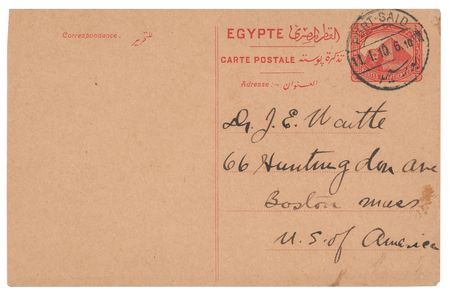 Correspondence. للتحرير
EGYPTE القطر المصرى
CARTE POSTALE تذكرة بوستة
Adresse: العنوان
PORT-SAID
11.1.10.6.
Dr J. E. Waitte
66 Huntingdon ave
Boston mass
U. S. of America